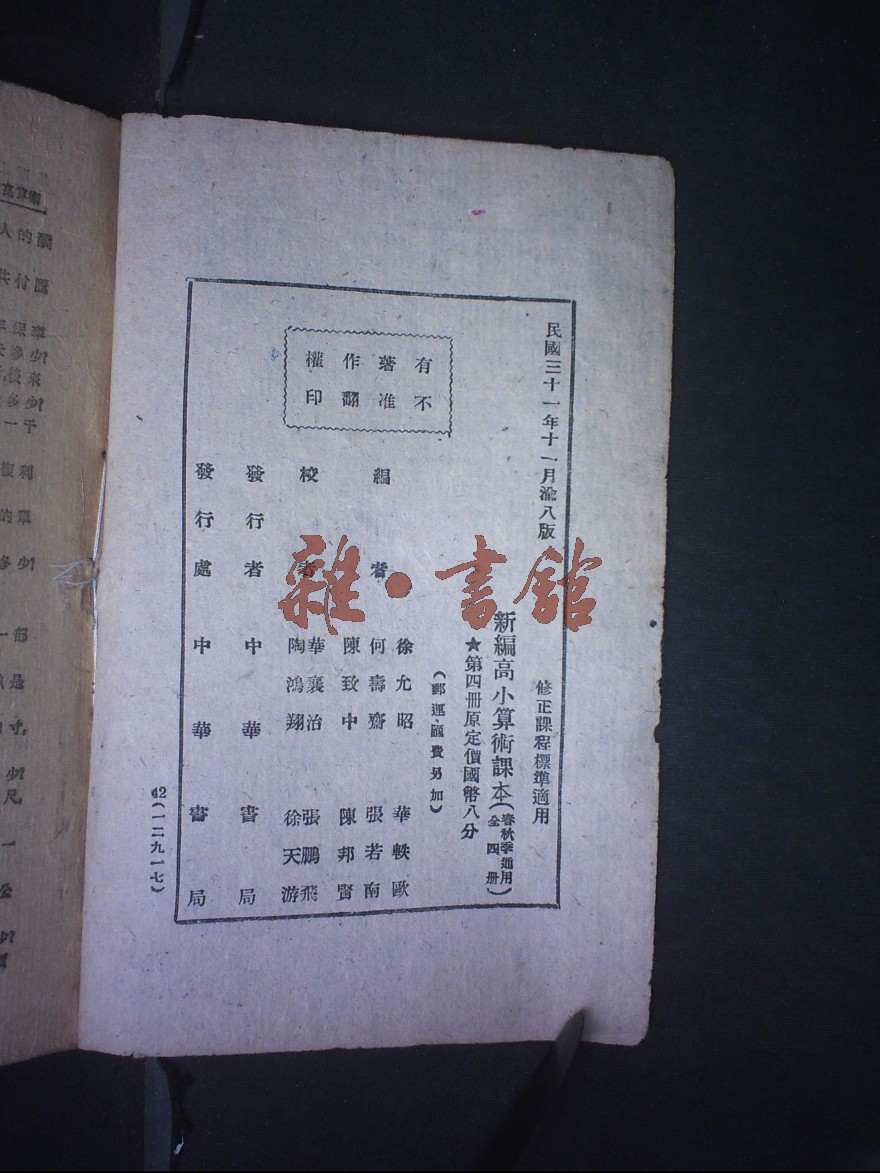 民國三十一年十一月渝八版
修正課程標準適用
新編高小算術課本(春秋季通用全四冊)
★第四冊原定價國幣八分
(郵運·匯費另加)
有著作權
不准翻印
編者
徐允昭 華軼歐
何壽齋 張若南
陳致中 陳邦賢
校者
華襄治 張鵬飛
陶鴻翔 徐天游
發行者 中華書局
發行處 中華書局
42(一二九一七)
雜·書館